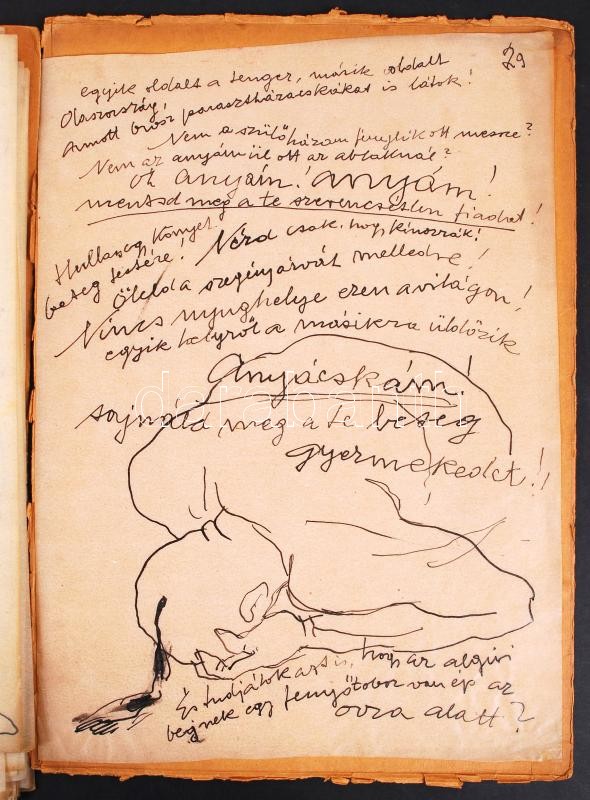 29
egyik oldalt a tenger, másik oldalt
Olaszország,
Amott orosz parasztházacskákat is látok!
Nem a szülőházam fénylik ott messze?
Nem az anyám ül ott az ablaknál?
Oh anyám! anyám!
mentsd meg a te szerencsétlen fiadat!
Hullass egy könnyet
beteg fejére! Nézd csak, hogy kínozzák!
Öleld a szegény árvát melledre!
Nincs nyughelye ezen a világon!
egyik helyről a másikra üldözik
Anyácskám!
sajnáld meg a te beteg
gyermekedet!!
darabanth
És tudjátok azt is, hogy az algiri
bejnek egy fenyőtoboz van ép az
orra alatt?